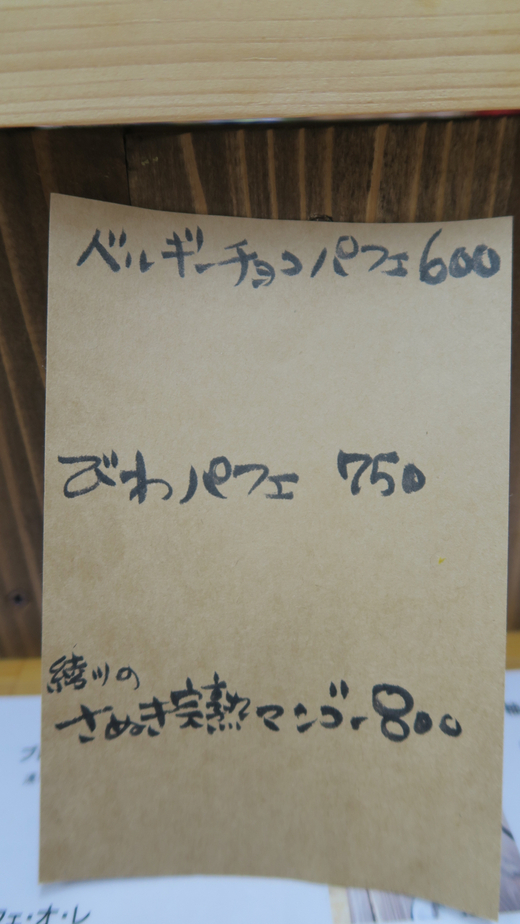 ベルギーチョコパフェ600
びわパフェ 750
綾川の
さぬき完熟マンゴー800
フェ・オ・レ